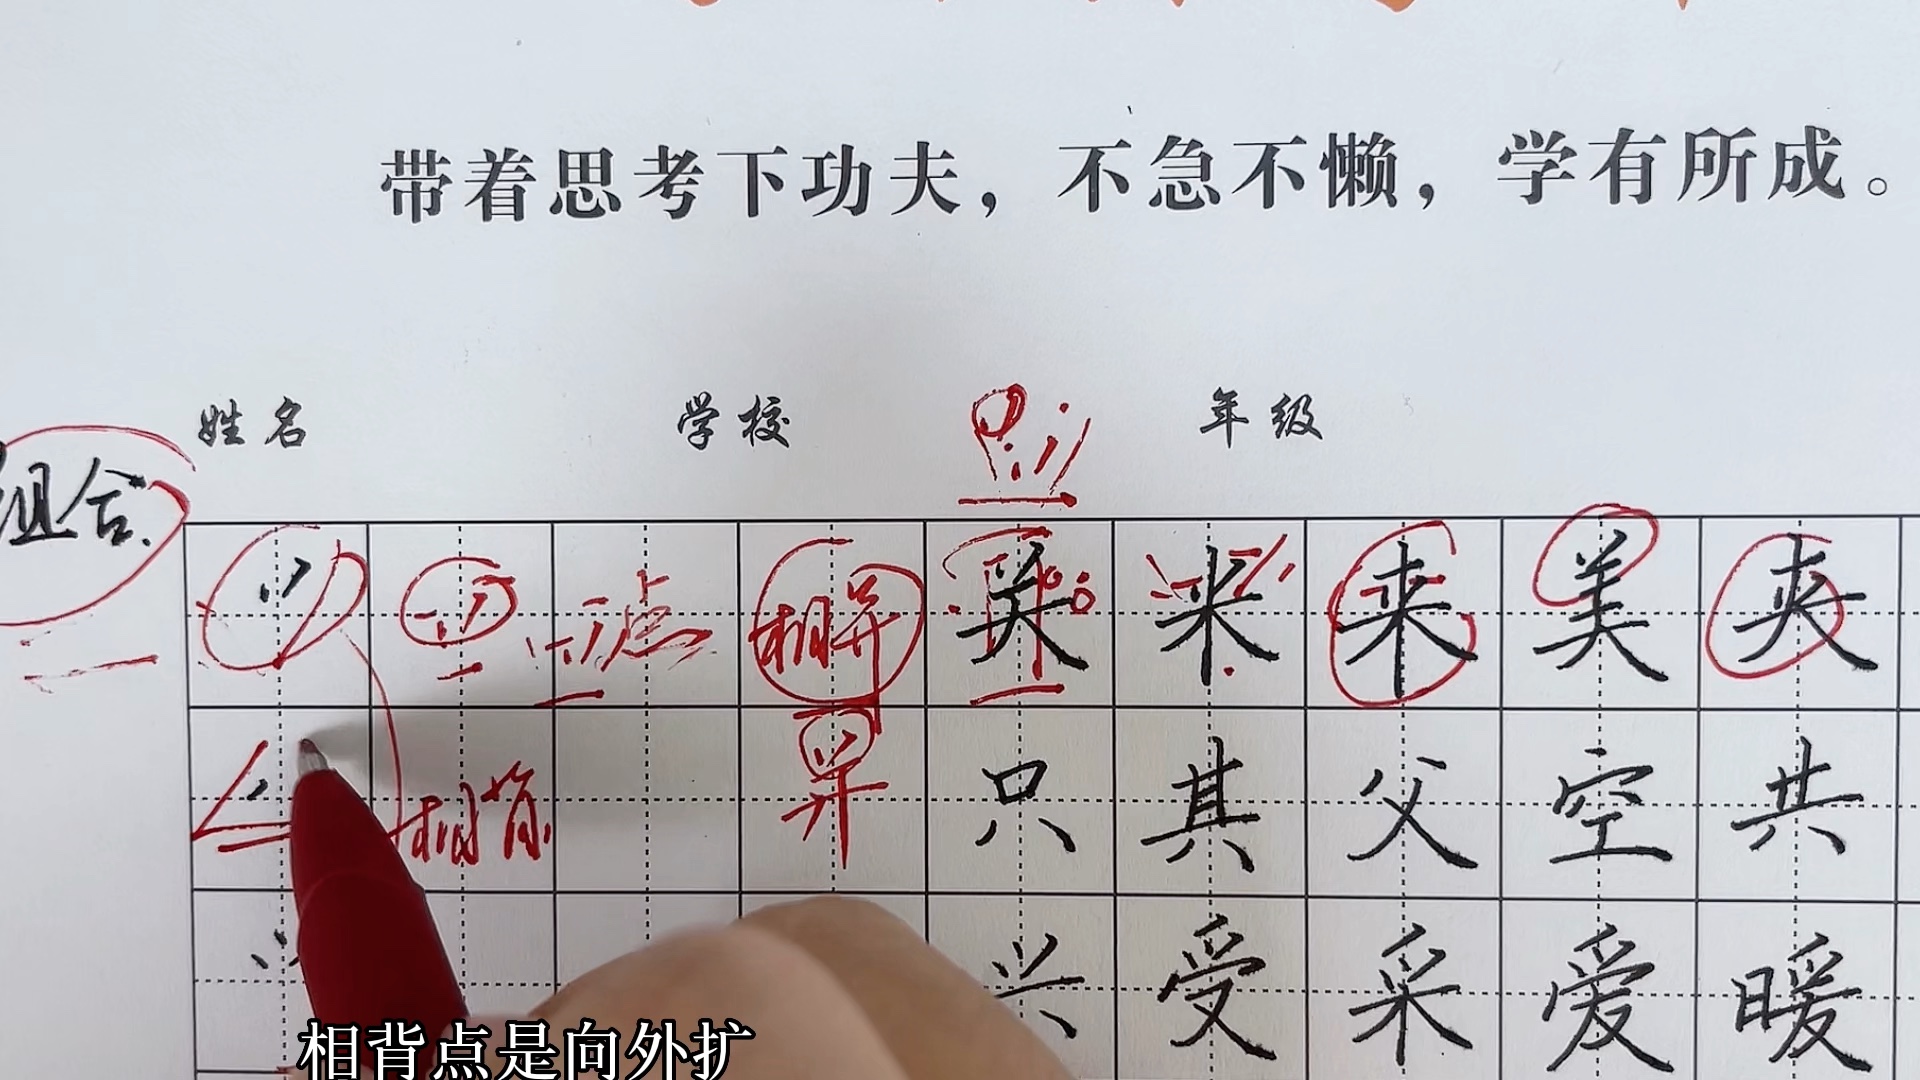 带着思考下功夫，不急不懒，学有所成。
姓名 学校 年级
组合.
点 相异 关 米 来 美 夹
相背 只 其 父 空 共
兴 受 采 爱 暖
相背点是向外扩